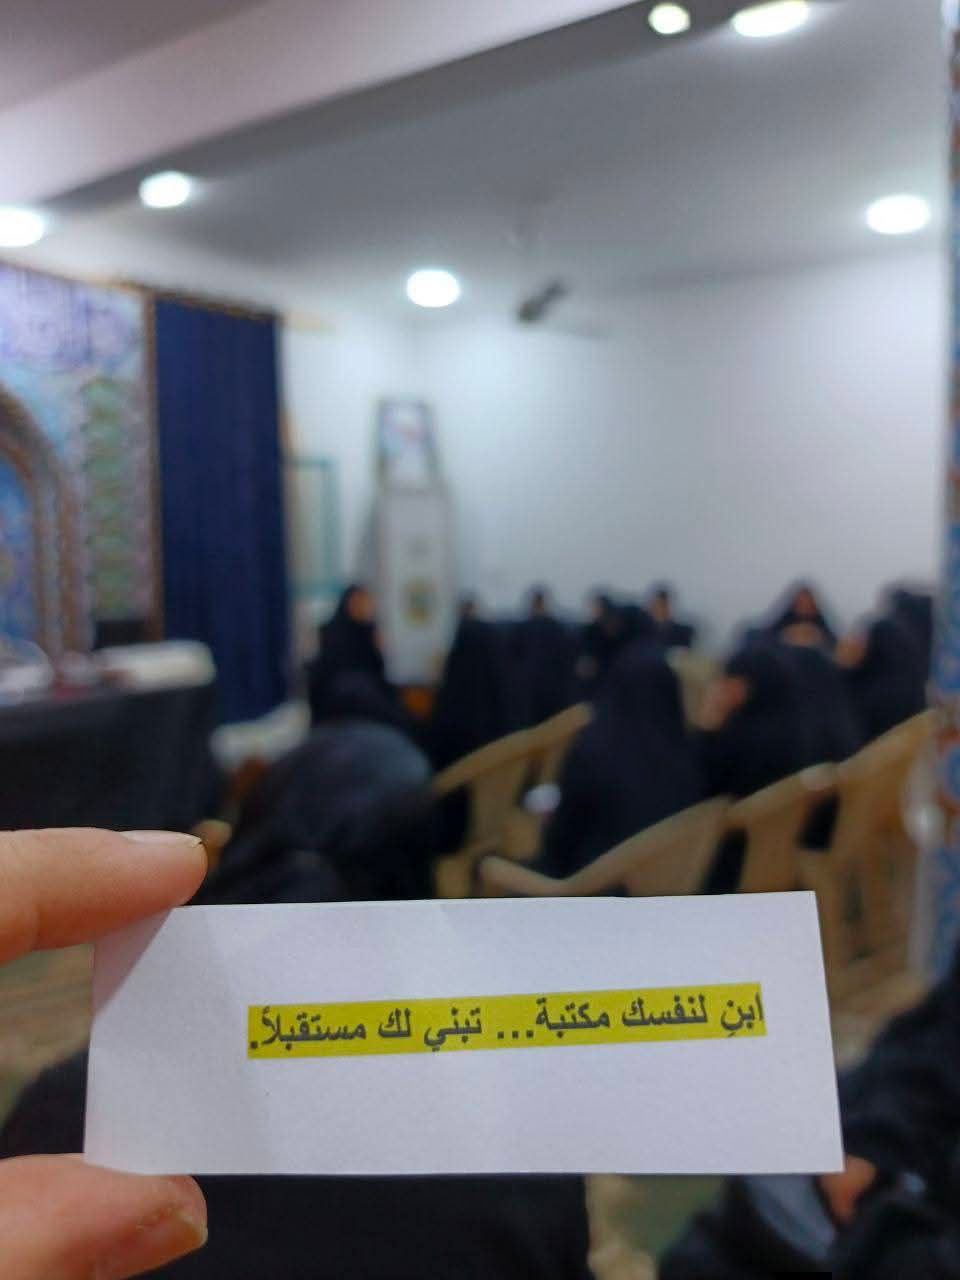 ابنِ لنفسك مكتبة... تبني لك مستقبلاً.